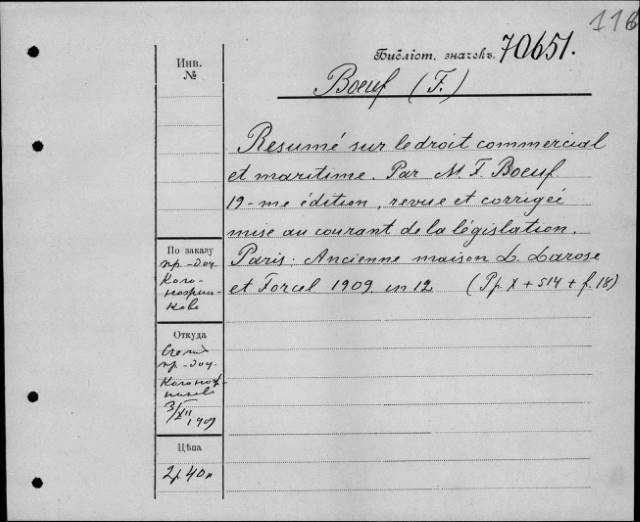 116
Инв.
№
Библіот. значекъ 70651.
Boeuf (F.)
Resumé sur le droit commercial
et maritime. Par M. F. Boeuf.
19-me édition, revue et corrigée
mise au courant de la législation.
Paris: Ancienne maison L. Larose
et Forcel 1909. in 12. (Pp. X + 514 + f. 18)
По заказу
пр.-доц.
Кого-
ково
Откуда
пр-доц.
3/XII 1909
Цѣна
2р 40к